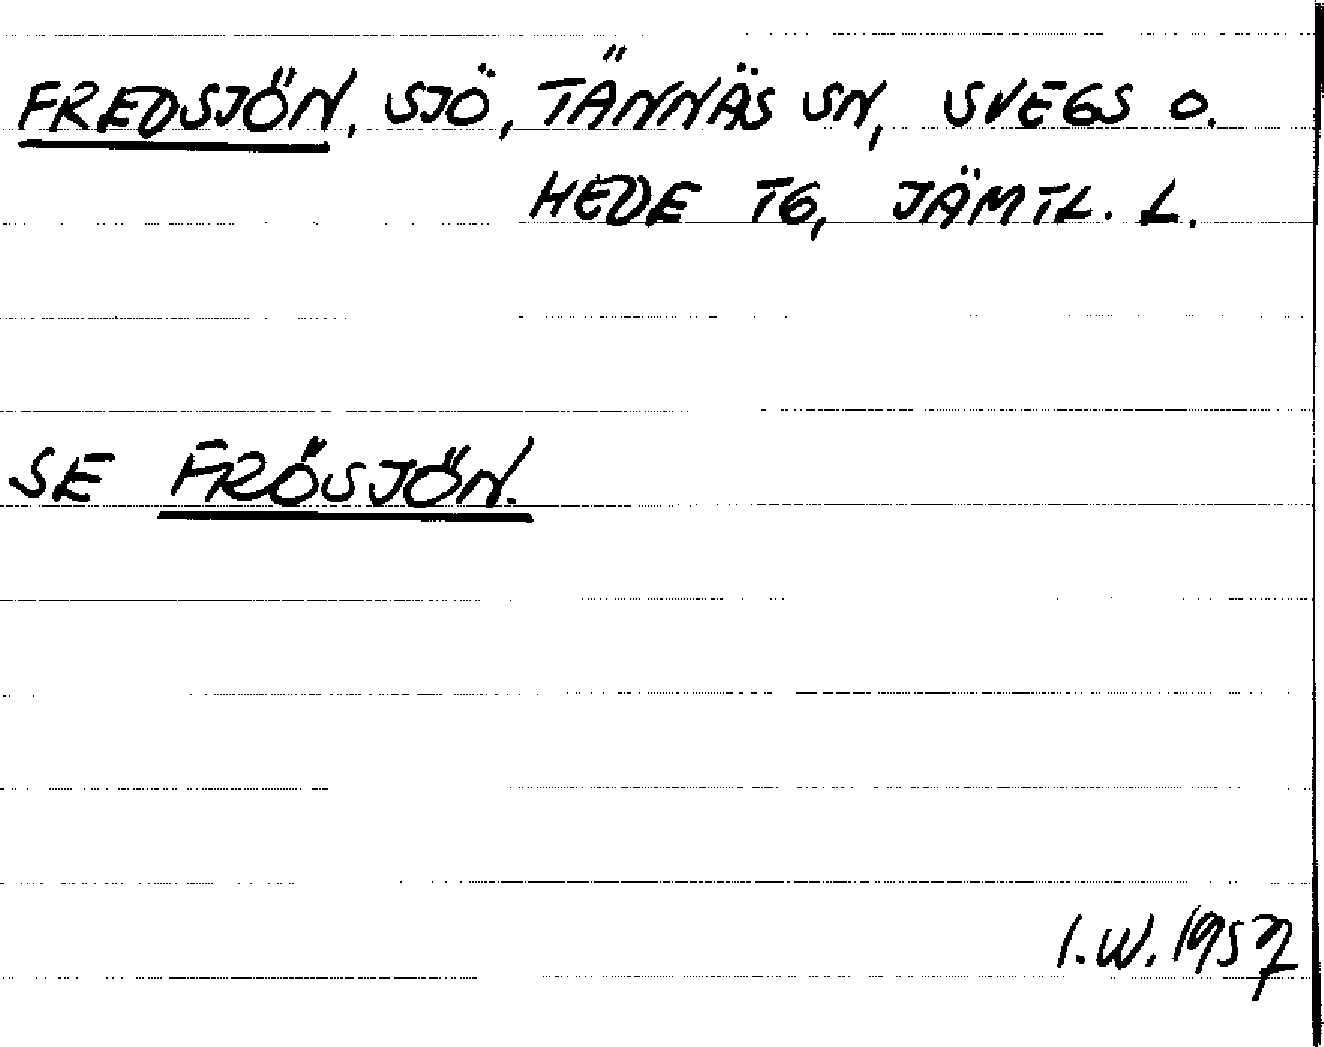 FREDSJÖN, SJÖ, TÄNNÄS SN, SVEGS O.
HEDE TG, JÄMTL. L.
SE FRÖSJÖN.
I.W. 1957